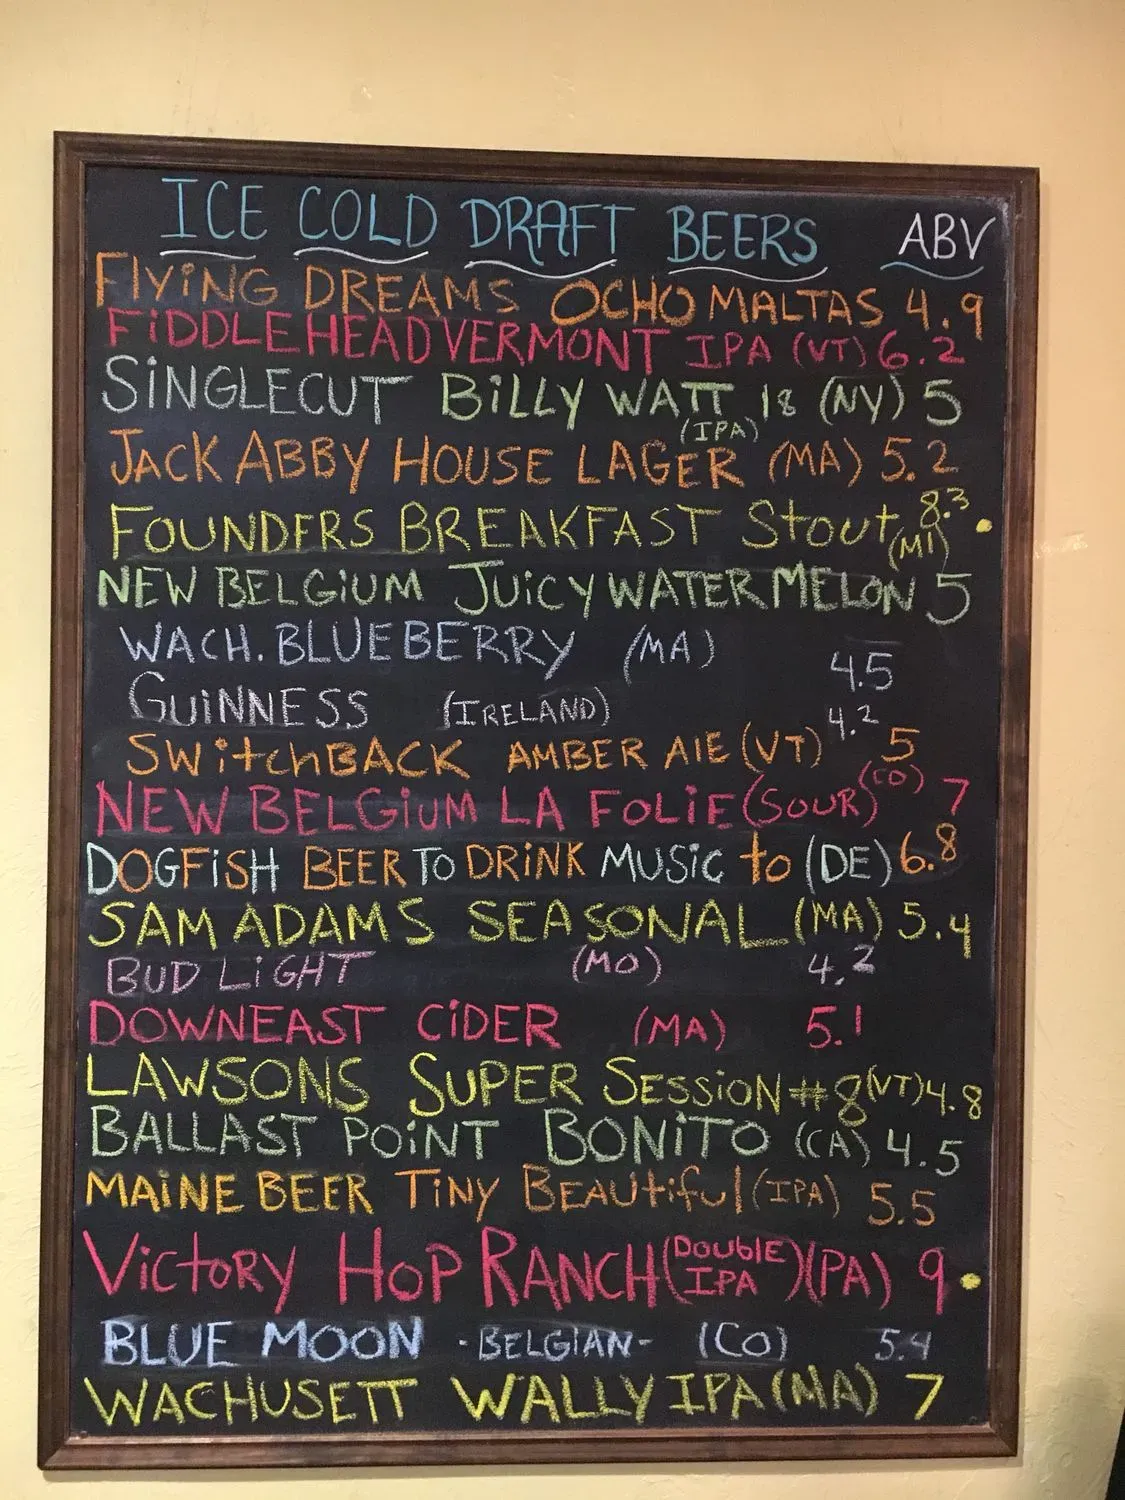 ICE COLD DRAFT BEERS ABV
FLYING DREAMS OCHO MALTAS 4.9
FIDDLEHEAD VERMONT IPA (VT) 6.2
SINGLECUT BILLY WATT 18 (NY) 5
(IPA)
JACK ABBY HOUSE LAGER (MA) 5.2
FOUNDERS BREAKFAST Stout (MI) 8.3
NEW BELGIUM JUICY WATERMELON 5
WACH. BLUEBERRY (MA) 4.5
GUINNESS (IRELAND) 4.2
SWitchBACK AMBER AlE (VT) 5
NEW BELGIUM LA FOLIE (SOUR) (CO) 7
DOGFISH BEER TO DRINK MUSIC to (DE) 6.8
SAM ADAMS SEASONAL (MA) 5.4
BUD LIGHT (MO) 4.2
DOWNEAST CIDER (MA) 5.1
LAWSONS SUPER SESSION #8 (VT) 4.8
BALLAST POINT BONITO (CA) 4.5
MAINE BEER TINY BEAUtiful (IPA) 5.5
VICTORY HOP RANCH (DOUblE IPA) (PA) 9
BLUE MOON - BELGIAN - (CO) 5.4
WACHUSETT WALLY IPA (MA) 7